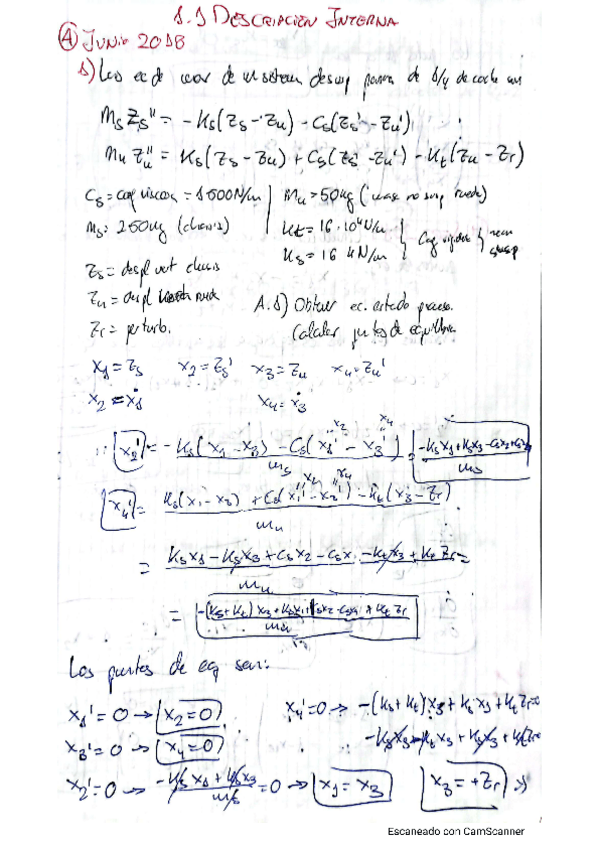 1.1 DESCRIPCIÓN INTERNA
(A) JUNIO 2018
1) Las ec de de un sistema de 1/4 de coche son
Ms Zs'' = -Ks(Zs - Zu) - Cs(Zs' - Zu')
Mu Zu'' = Ks(Zs - Zu) + Cs(Zs' - Zu') - Kt(Zu - Zr)
Cs = viscos = 1500N/m | Mu = 50kg ( no susp rueda)
Ms = 250kg (chasis) | Kt = 16·10⁴N/m
Ks = 16 kN/m } susp
Zs = despl vert chasis
Zu = despl rueda
Zr = perturb.
A.1) Obtener ec. estado proceso.
Calcular puntos de equilibrio
x1 = Zs x2 = Zs' x3 = Zu x4 = Zu'
x2 = ẋ1 x4 = ẋ3
x2 x4
x2' = (-Ks(x1 - x3) - Cs(x1' - x3')) / ms = (-Ksx1 + Ksx3 - Csx2 + Csx4) / ms
x4' = (Ks(x1 - x3) + Cs(x1' - x3') - Kt(x3 - Zr)) / mu
= (Ksx1 - Ksx3 + Csx2 - Csx4 - Ktx3 + Kt Zr) / mu =
= (-(Ks+Kt)x3 + Ksx1 + Csx2 - Csx4 + Kt Zr) / mu
Los puntos de eq son:
x1' = 0 → x2 = 0 x4' = 0 → -(Ks+Kt)x3 + Ksx1 + KtZr=0
x3' = 0 → x4 = 0 -Ksx3 - Ktx3 + Ksx3 + KtZr=0
x2' = 0 → (-Ksx1 + Ksx3) / ms = 0 → x1 = x3 x3 = +Zr
Escaneado con CamScanner